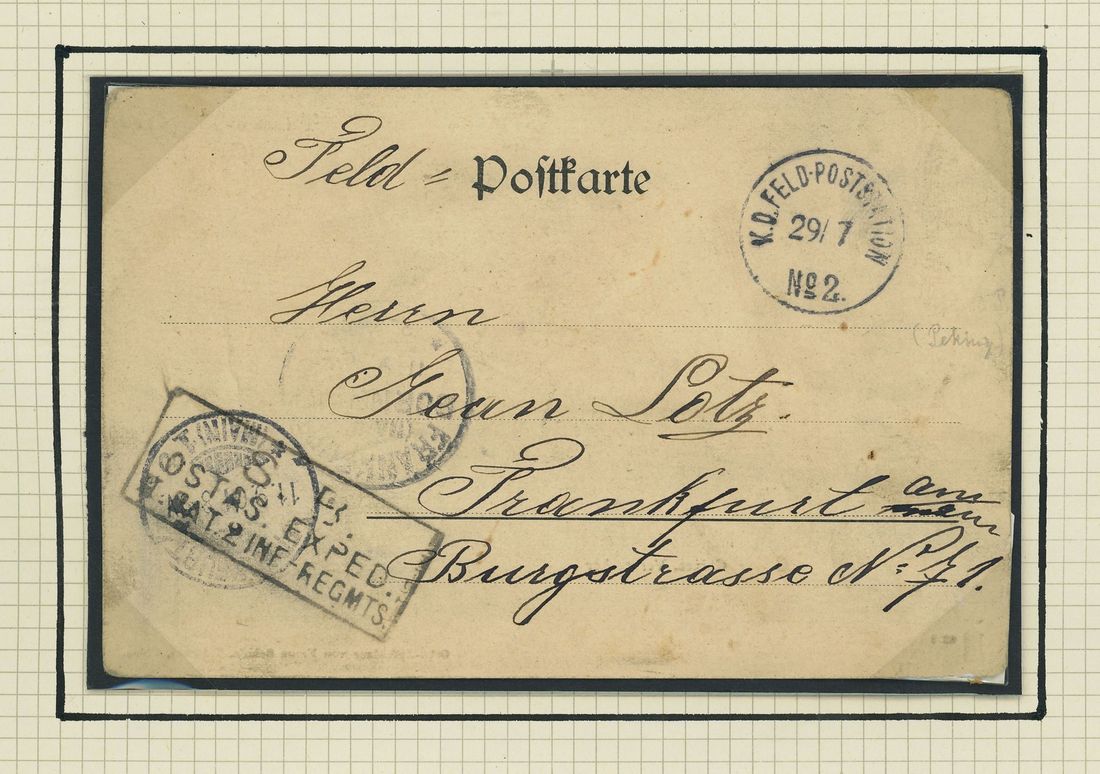 Feld = Postkarte
K.D. FELD-POSTSTATION
29/7
No 2.
Herrn
(Peking)
Jean Lotz.
Frankfurt am
Burgstrasse No 71.
FRANK
S. B.
OSTAS. EXPED.
BAT. 2 INF. REGMTS.
(MAIN) 1